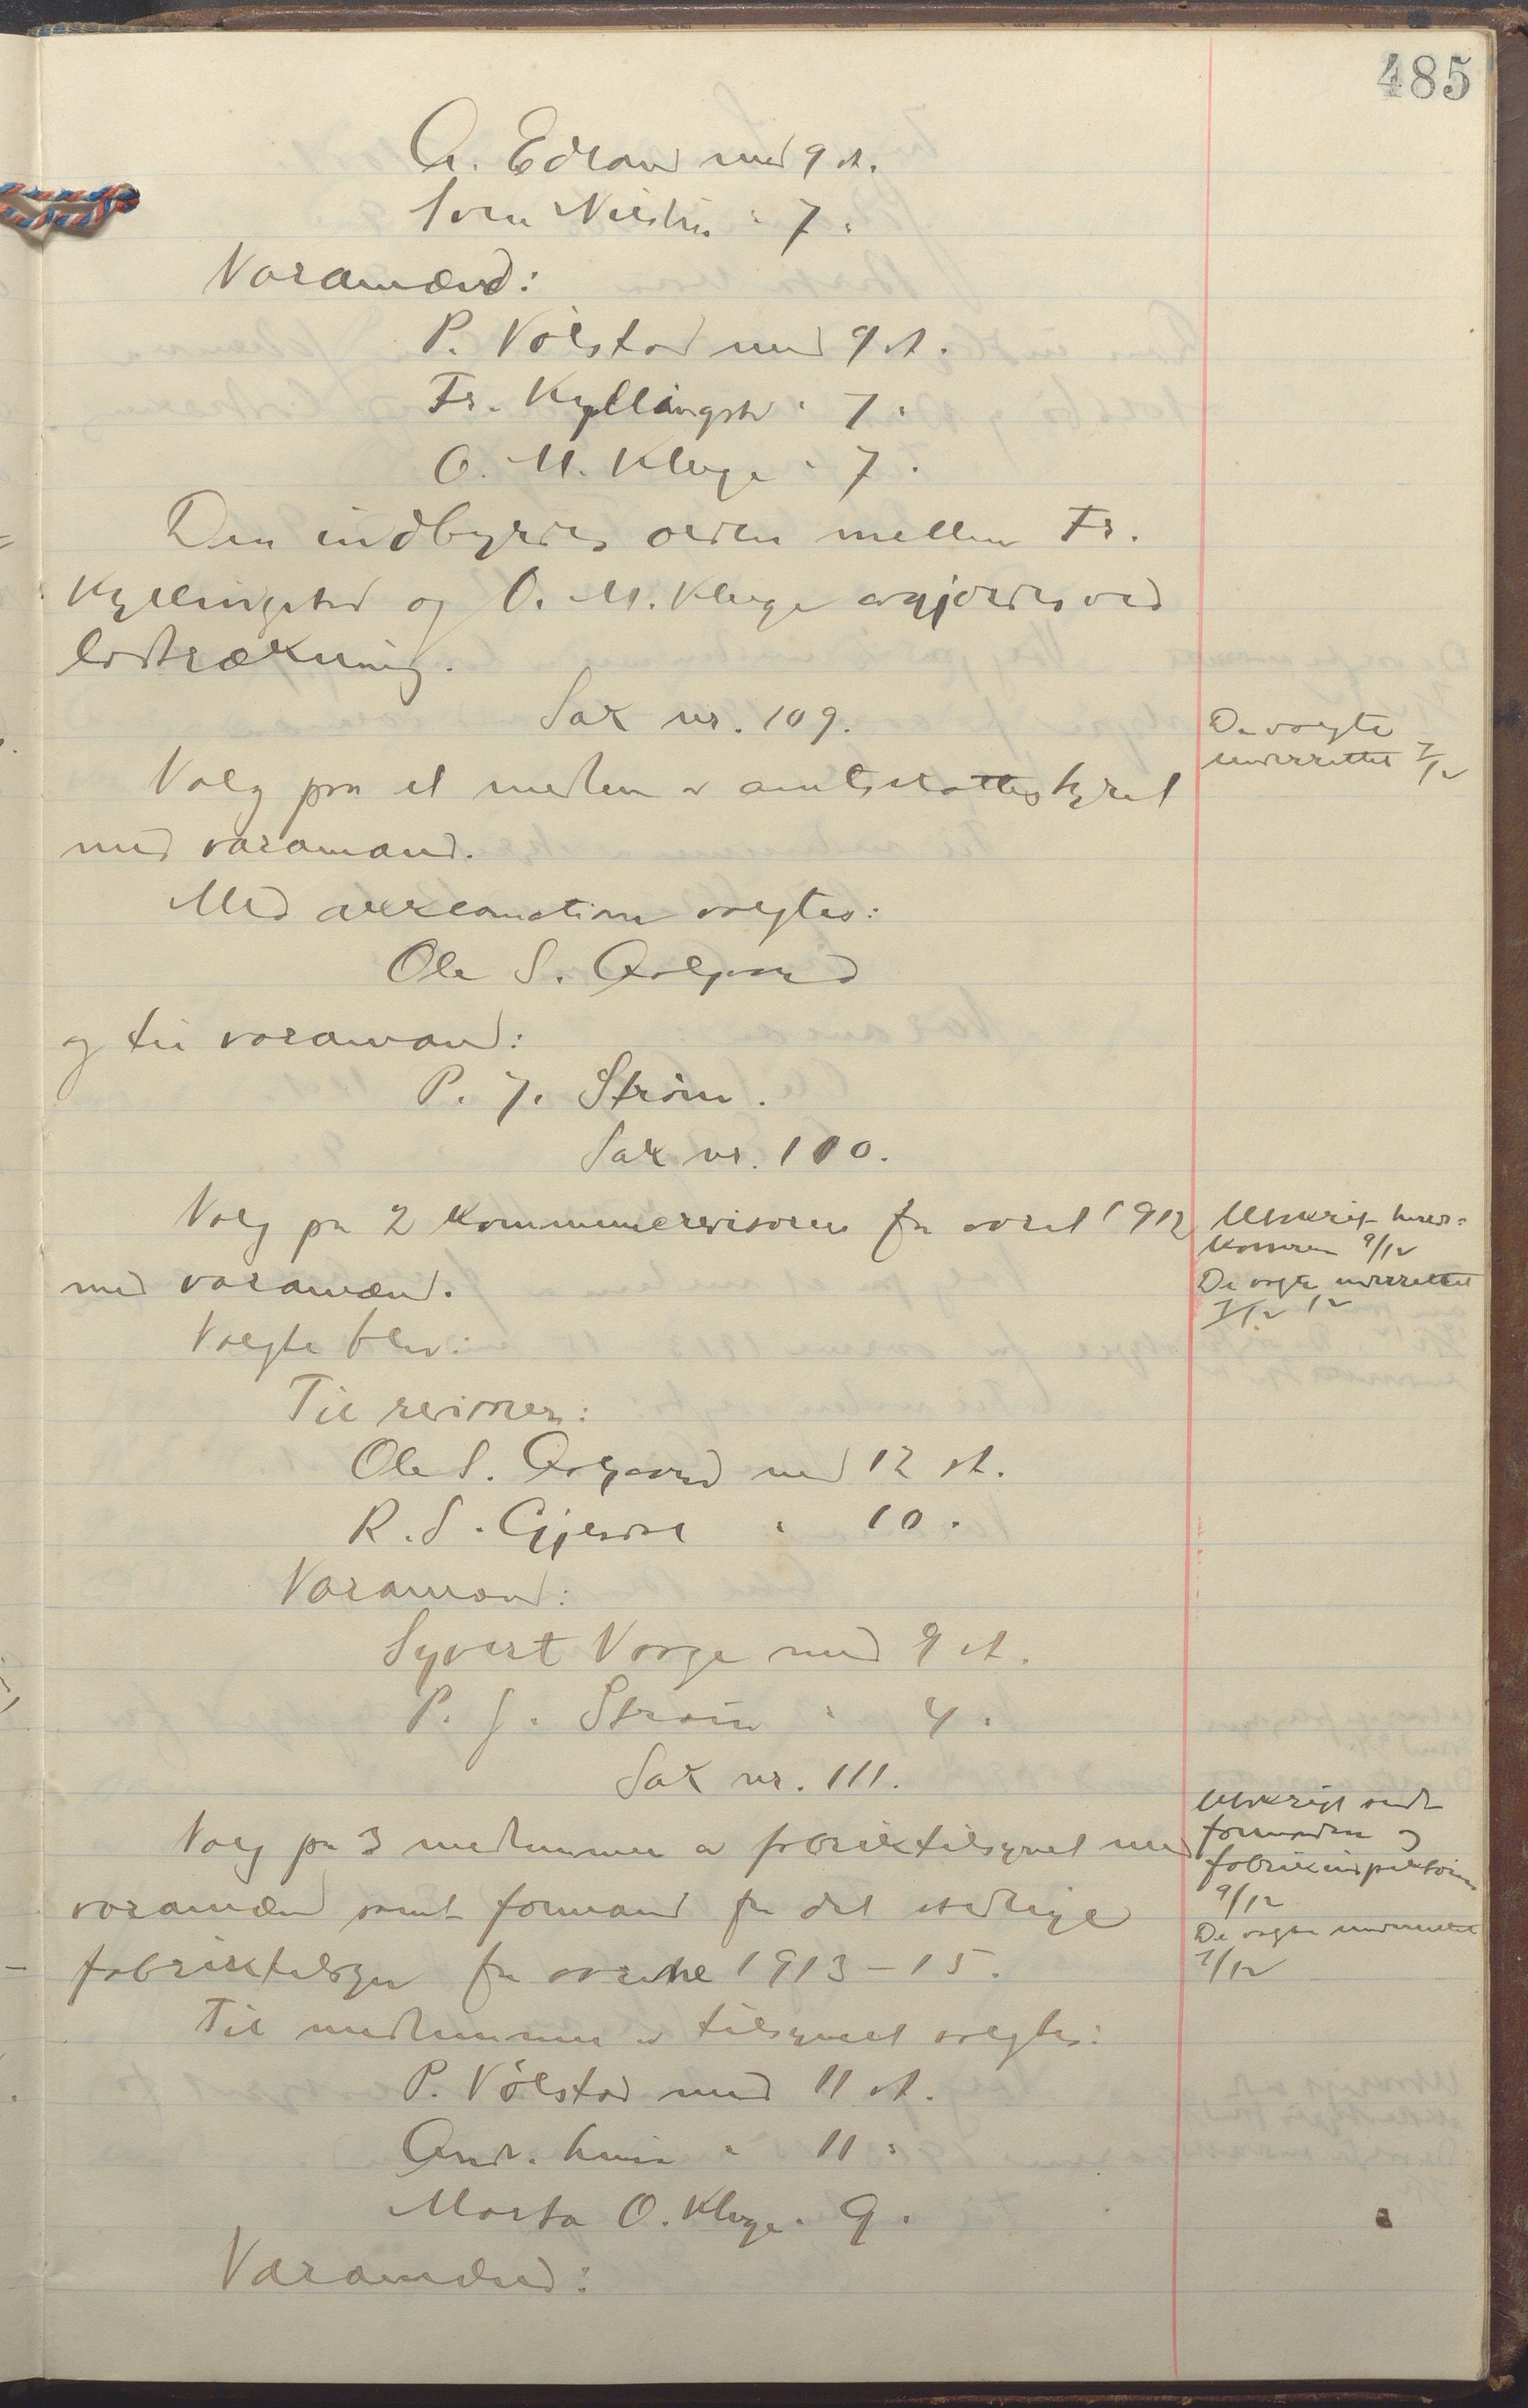 485
A. Edland med 9 st.
Sven Nilsen " 7 "
Varamænd:
P. Vølstad med 9 st.
Fr. Kyllingst " 7 "
O. M. Kluge " 7 "
Den indbyrdes orden mellem Fr.
Kyllingstad og O. M. Kluge avgjordes ved
lodtrækning.
Sak nr. 109.
De valgte
underrettet 7/12
Valg paa et medlem av amtsskattestyret
med varamand.
Med akklamation valgtes:
Ole S. Aalgaard
og til varamand:
P. J. Strøm.
Sak nr. 110.
Valg på 2 kommunerevisorer for aaret 1912
med varamænd.
Utskrift herreds-
kasseren 9/12
De valgte underrettet
7/12 12
Valgte blev:
Til revisorer:
Ole S. Aalgaard med 12 st.
R. S. Gjesdal " 10 "
Varamænd:
Syvert Varge med 9 st.
P. J. Strøm " 4 "
Sak nr. 111.
Valg på 3 medlemmer av fabriktilsynet med
varamænd samt formand for det stedlige
fabriktilsyn for aarene 1913-15.
Utskrift sendt
formanden og
fabrikinspektøren
9/12
De valgte underrettet
7/12
Til medlemmer av tilsynet valgtes:
P. Vølstad med 11 st.
And. " 11 "
Marta O. Kluge " 9 "
Varamænd: